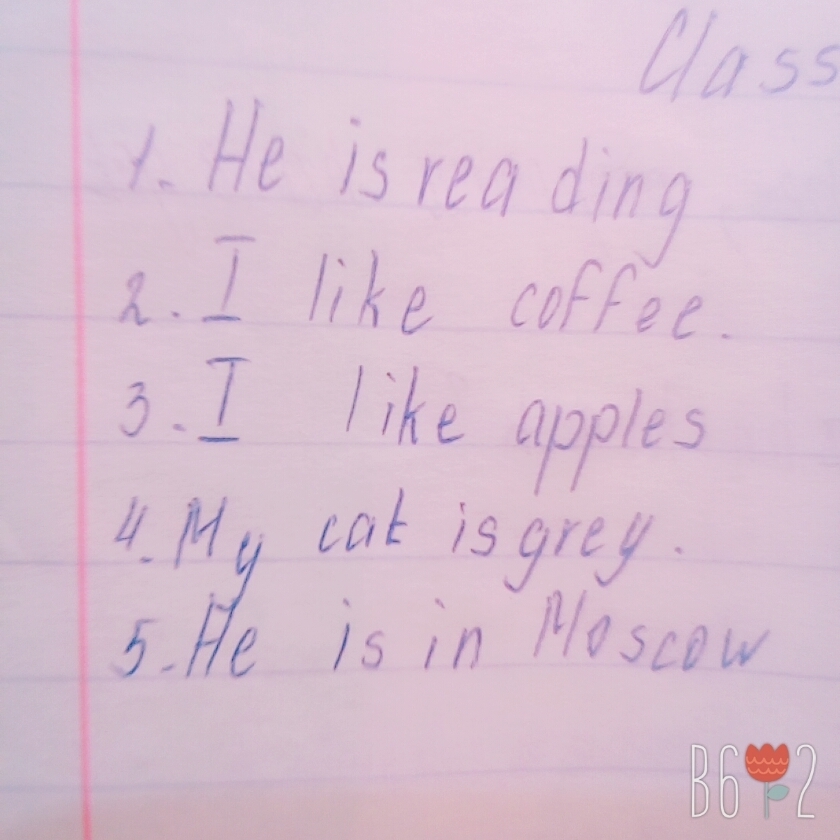 Class
1. He is reading
2. I like coffee.
3. I like apples
4. My cat is grey.
5. He is in Moscow
B612